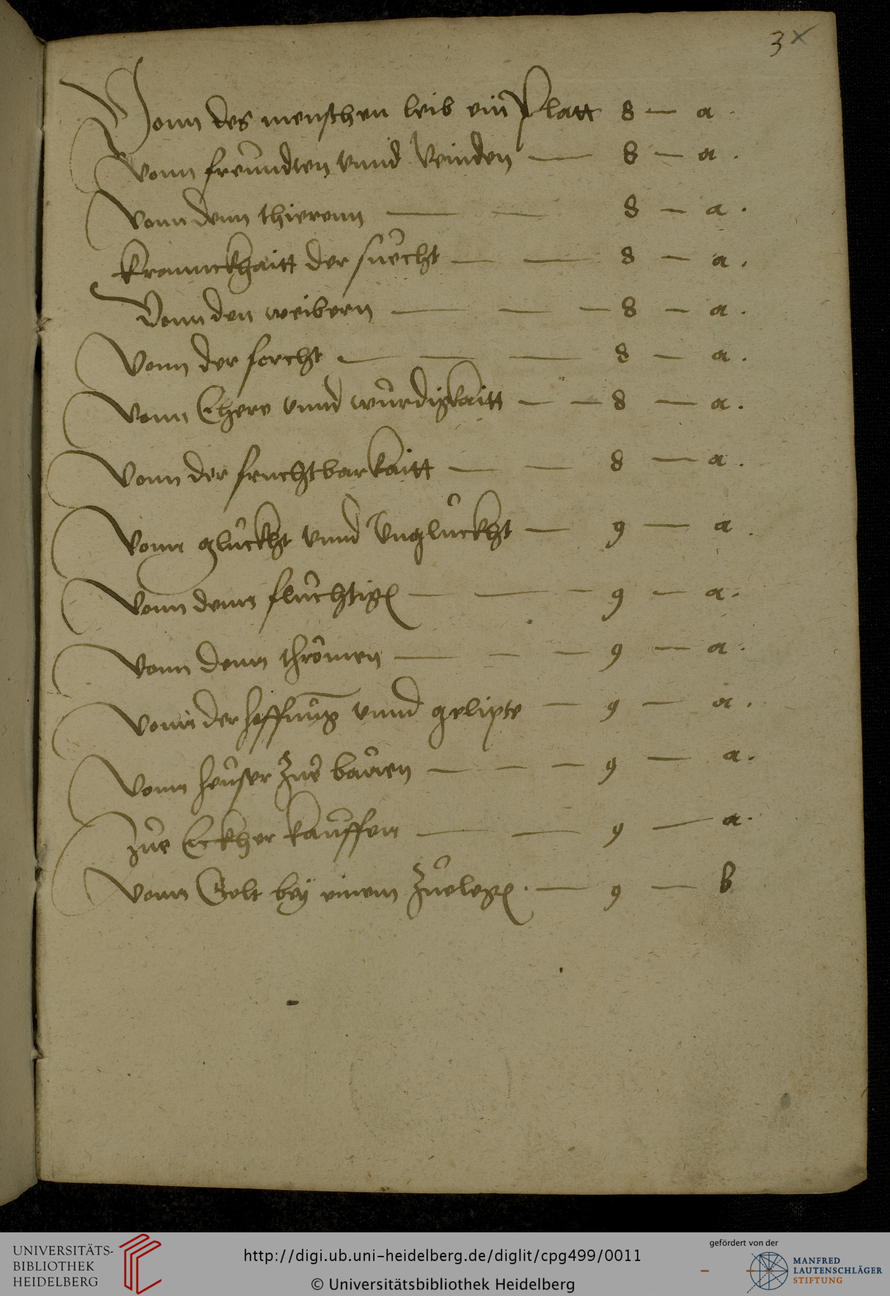 3x
Vonn des menschen leib ein Platt 8 — a.
Vonn freundten vnnd Veinden — 8 — a.
Vonn denn thierenn — — 8 — a.
Krannckhaitt der sucht — — 8 — a.
Vonn den weibern — — — 8 — a.
Vonn der forcht — — — 8 — a.
Vonn Ehere vnnd wurdigkaitt — — 8 — a.
Vonn der fruchtbarkaitt — — 8 — a.
Vonn gluckht vnnd Vngluckht — 9 — a.
Vonn denn fluchtigen — — — 9 — a.
Vonn denn thromen — — — 9 — a.
Vonn der hoffnung vnnd gelipte — 9 — a.
Vonn heuser zue bauen — — — 9 — a.
Zue Eckher kauffen — — 9 — a.
Vonn Gelt bey einem Zuelegen. — 9 — b
UNIVERSITÄTS-
BIBLIOTHEK
HEIDELBERG
http://digi.ub.uni-heidelberg.de/diglit/cpg499/0011
© Universitätsbibliothek Heidelberg
gefördert von der
MANFRED
LAUTENSCHLÄGER
STIFTUNG